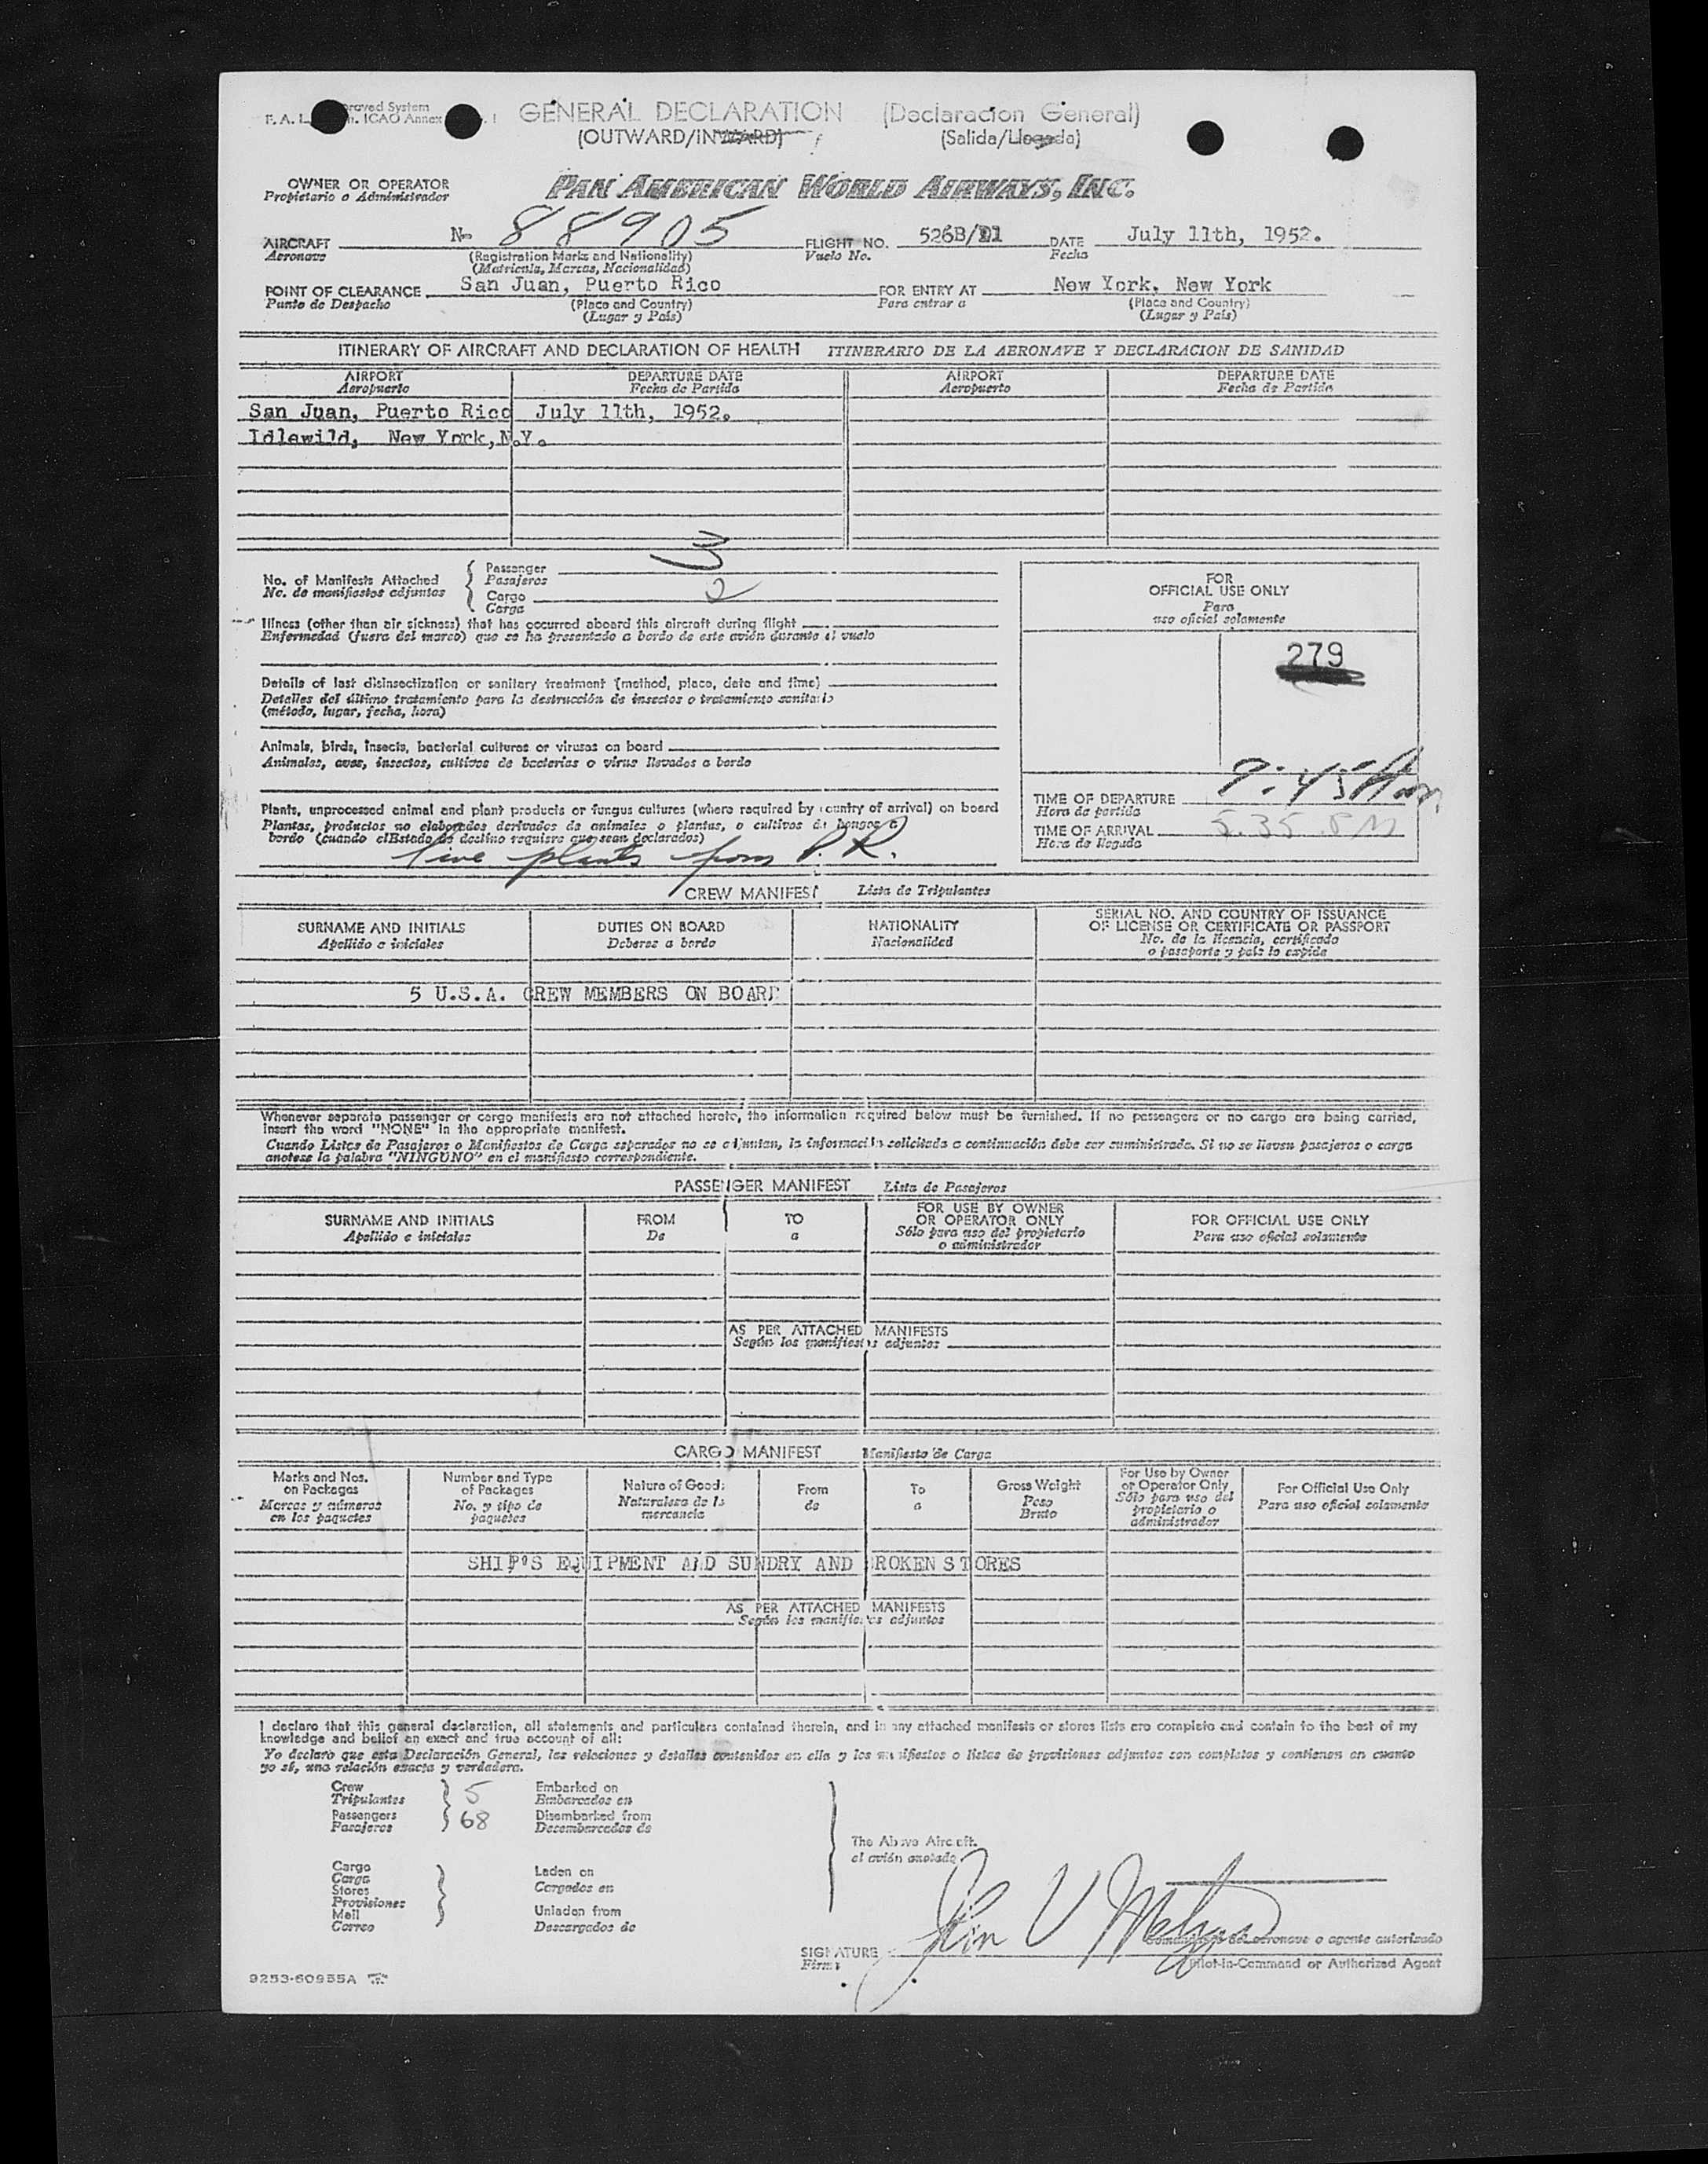 F. A. L. ICAO Annex
GENERAL DECLARATION (Declaracion General)
(OUTWARD/INWARD) (Salida/Llegada)
OWNER OR OPERATOR PAN AMERICAN WORLD AIRWAYS, INC.
Propietario o Administrador
AIRCRAFT N- 88905 FLIGHT NO. 526B/ DATE July 11th, 1952.
Aeronave (Registration Marks and Nationality) Vuelo No. Fecha
(Matricula, Marcas, Nacionalidad)
POINT OF CLEARANCE San Juan, Puerto Rico FOR ENTRY AT New York, New York
Punto de Despacho (Place and Country) Para entrar a (Place and Country)
(Lugar y País) (Lugar y País)
ITINERARY OF AIRCRAFT AND DECLARATION OF HEALTH ITINERARIO DE LA AERONAVE Y DECLARACION DE SANIDAD
AIRPORT DEPARTURE DATE AIRPORT DEPARTURE DATE
Aeropuerto Fecha de Partida Aeropuerto Fecha de Partida
San Juan, Puerto Rico July 11th, 1952.
Idlewild, New York, N.Y.
No. of Manifests Attached Passenger 3
No. de manifiestos adjuntos Pasajeros
Cargo 2
Carga
FOR
OFFICIAL USE ONLY
Para
uso oficial solamente
279
Illness (other than air sickness) that has occurred aboard this aircraft during flight
Enfermedad (fuera del mareo) que se ha presentado a bordo de este avión durante el vuelo
Details of last disinsectization or sanitary treatment (method, place, date and time)
Detalles del último tratamiento para la destrucción de insectos o tratamiento sanitario
(método, lugar, fecha, hora)
Animals, birds, insects, bacterial cultures or viruses on board
Animales, aves, insectos, cultivos de bacterias o virus llevados a bordo
Plants, unprocessed animal and plant products or fungus cultures (where required by country of arrival) on board
Plantas, productos no elaborados derivados de animales o plantas, o cultivos de hongos a
bordo (cuando el Estado de destino requiere que sean declarados)
live plants from P.R.
TIME OF DEPARTURE 9:45 Am
Hora de partida
TIME OF ARRIVAL 5.35 PM
Hora de llegada
CREW MANIFEST Lista de Tripulantes
SURNAME AND INITIALS DUTIES ON BOARD NATIONALITY SERIAL NO. AND COUNTRY OF ISSUANCE
OF LICENSE OR CERTIFICATE OR PASSPORT
Apellido e iniciales Deberes a bordo Nacionalidad No. de la licencia, certificado
o pasaporte y país lo expide
5 U.S.A. CREW MEMBERS ON BOARD
Whenever separate passenger or cargo manifests are not attached hereto, the information required below must be furnished. If no passengers or no cargo are being carried,
insert the word "NONE" in the appropriate manifest.
Cuando Listas de Pasajeros o Manifiestos de Carga separados no se adjuntan, la información solicitada a continuación debe ser suministrada. Si no se llevan pasajeros o carga
anotese la palabra "NINGUNO" en el manifiesto correspondiente.
PASSENGER MANIFEST Lista de Pasajeros
SURNAME AND INITIALS FROM TO FOR USE BY OWNER
OR OPERATOR ONLY FOR OFFICIAL USE ONLY
Apellido e iniciales De a Sólo para uso del propietario
o administrador Para uso oficial solamente
AS PER ATTACHED MANIFESTS
Según los manifiestos adjuntos
CARGO MANIFEST Manifiesto de Carga
Marks and Nos.
on Packages
Marcas y números
en los paquetes
Number and Type
of Packages
No. y tipo de
paquetes
Nature of Goods
Naturaleza de la
mercancía
From
de
To
a
Gross Weight
Peso
Bruto
For Use by Owner
or Operator Only
Sólo para uso del
propietario o
administrador
For Official Use Only
Para uso oficial solamente
SHIP'S EQUIPMENT AND SUNDRY AND BROKEN STORES
AS PER ATTACHED MANIFESTS
Según los manifiestos adjuntos
I declare that this general declaration, all statements and particulars contained therein, and in any attached manifests or stores lists are complete and contain to the best of my
knowledge and belief an exact and true account of all:
Yo declaro que esta Declaración General, las relaciones y detalles contenidos en ella y los manifiestos o listas de provisiones adjuntos son completos y contienen en cuanto
yo sé, una relación exacta y verdadera.
Crew 5 Embarked on
Tripulantes Embarcados en
Passengers 68 Disembarked from
Pasajeros Desembarcados de
The Above Aircraft.
el avión anotado
Cargo
Carga
Stores
Provisiones
Mail
Correo
Laden on
Cargados en
Unladen from
Descargados de
SIGNATURE
Firma
Comandante de aeronave o agente autorizado
Pilot-in-Command or Authorized Agent
9253-60955A